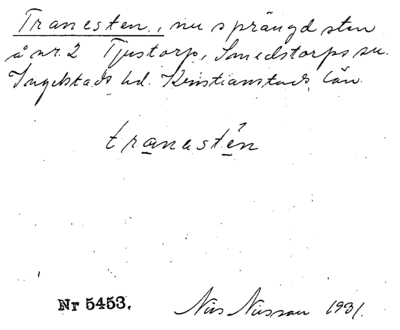 Tranesten, nu sprängd sten
å nr. 2 Tjustorp, Smedstorps sn.
Ingelstads hd. Kristianstads län.
tranestén
Nr 5453. Nils Nilsson 1931.